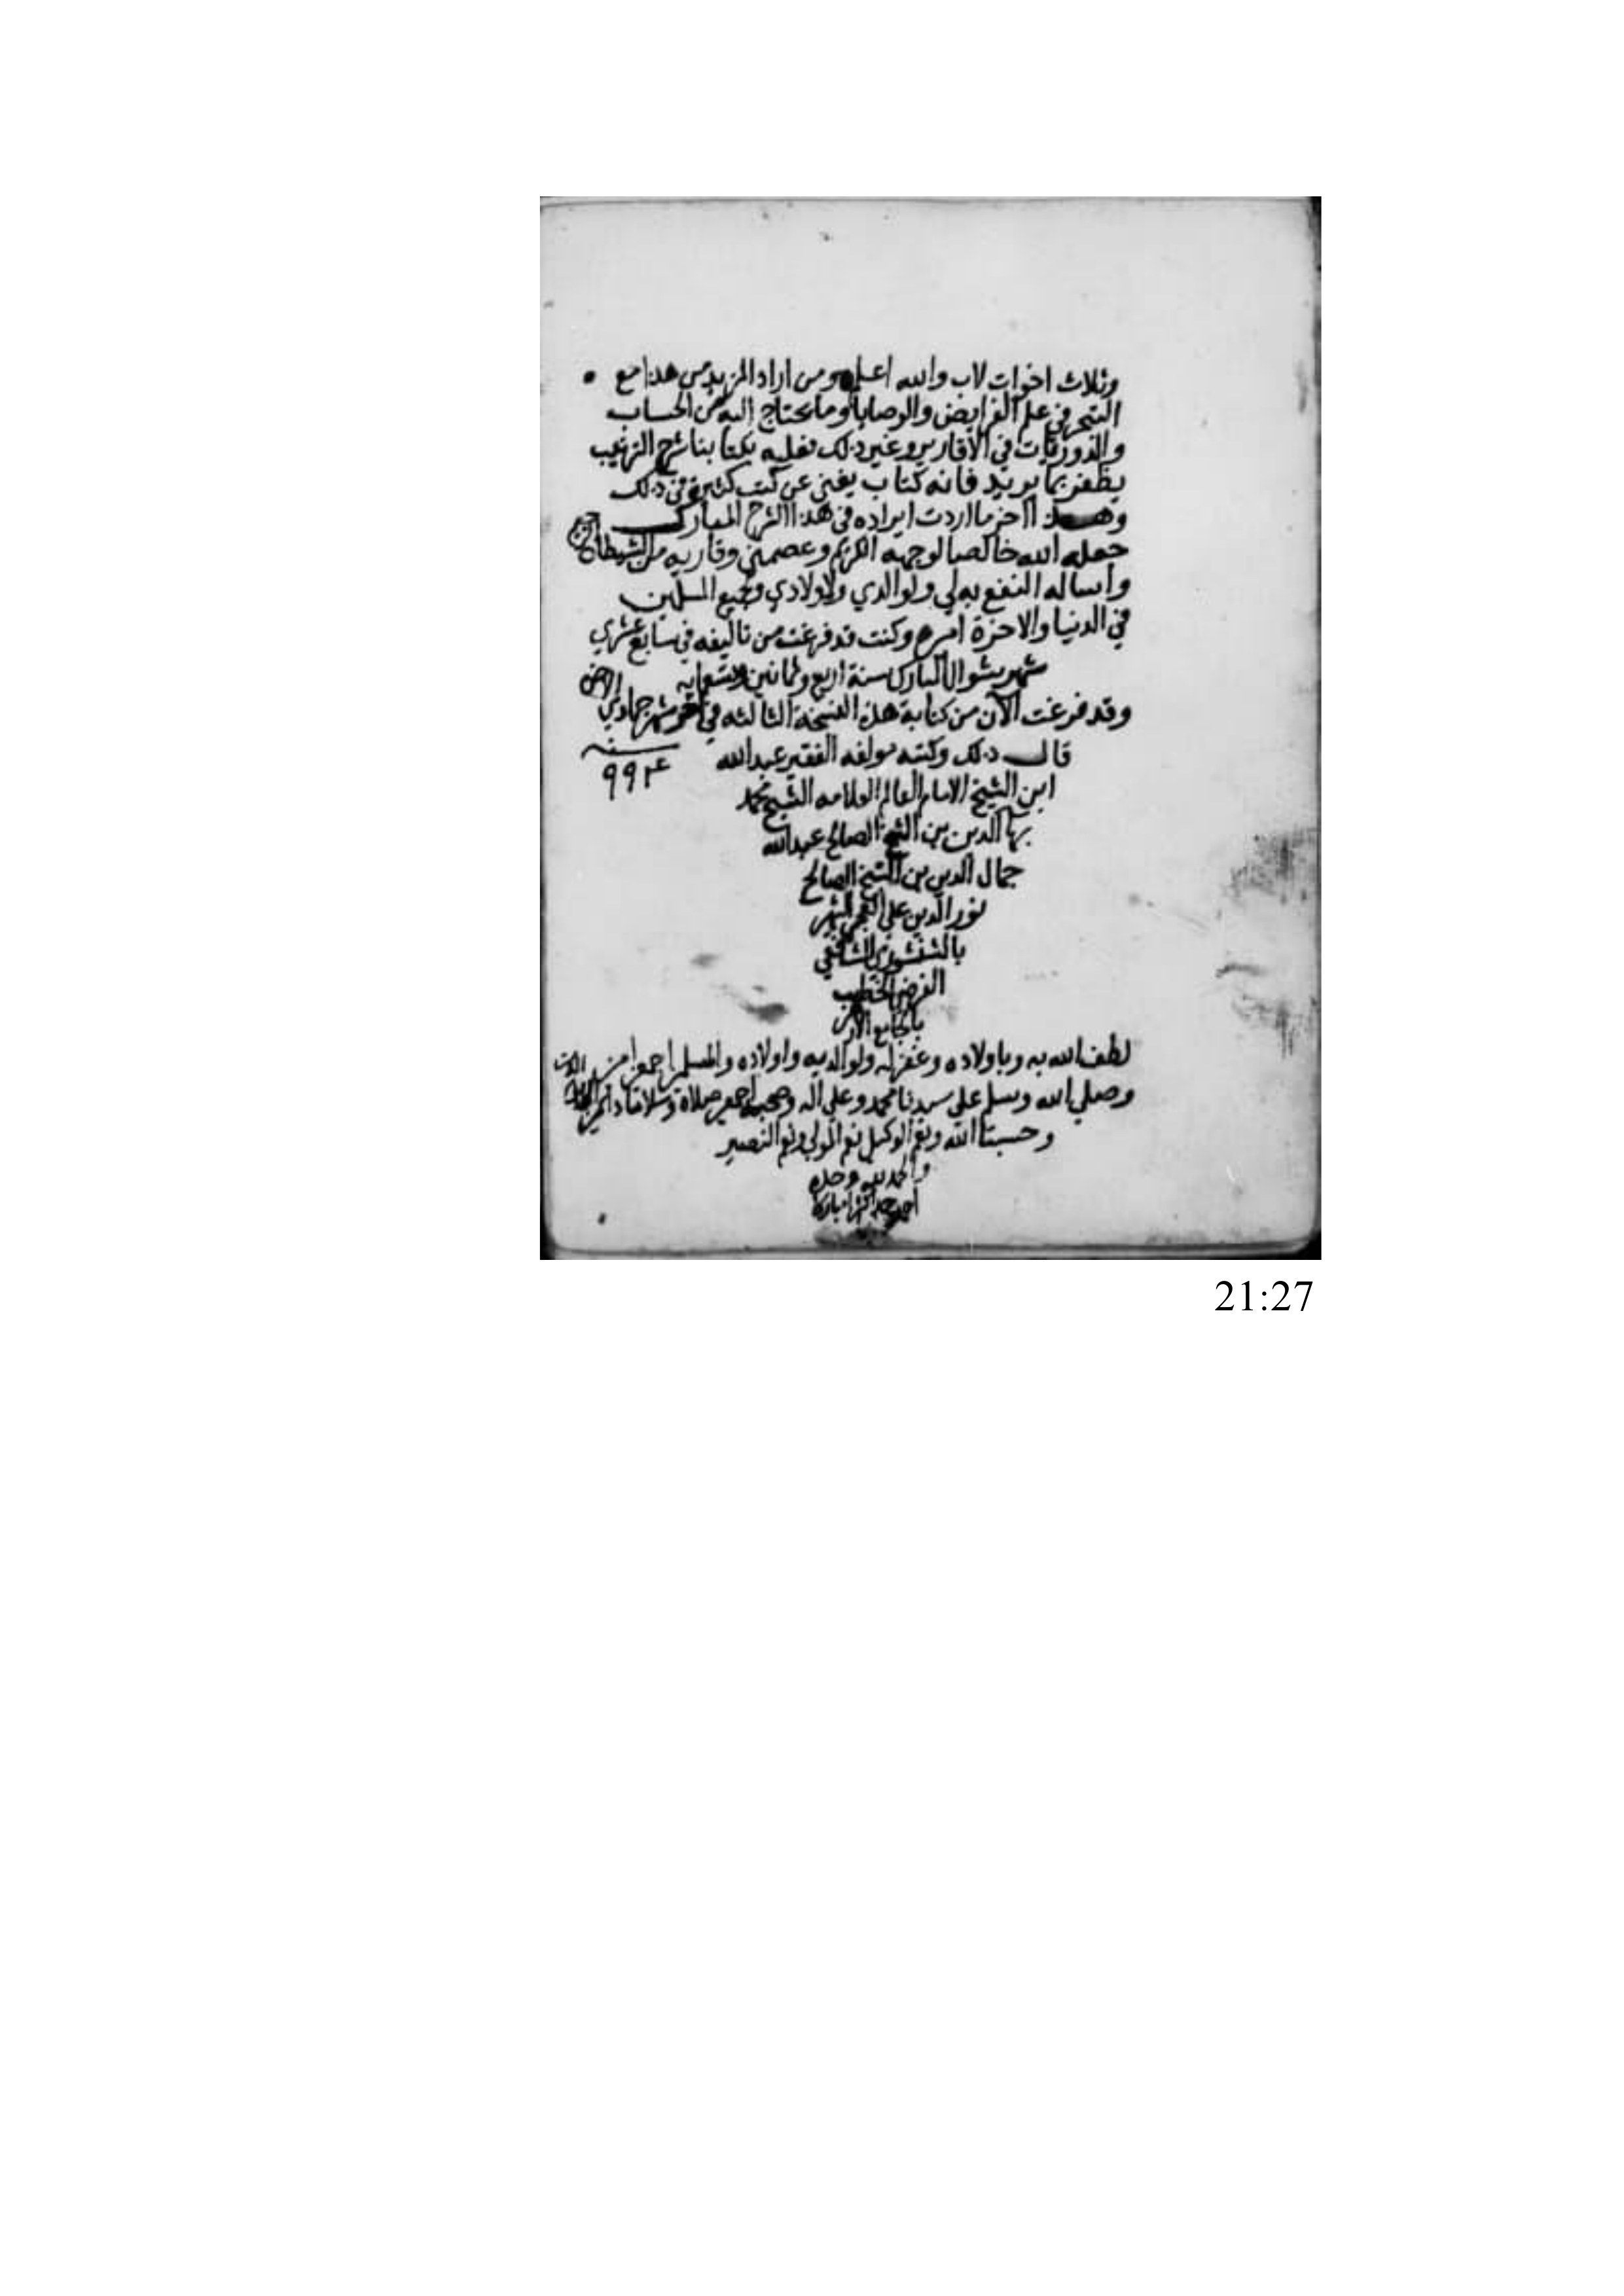 وثلاث اخوات لاب والله اعلم ومن اراد المزيد من هذا مع
التبحر في علم الفرايض والوصايا وما يحتاج اليه من الحساب
والدوريات في الاقارير وغير ذلك فعليه بكتابنا شرح الترتيب
يظفر بما يريد فانه كتاب يغني عن كتب كثيرة في ذلك
وهذا اخر ما اردت ايراده في هذا الشرح المبارك
جعله الله خالصا لوجهه الكريم وعصمني وقاريه من الشيطان الرجيم
واساله النفع به لي ولوالدي ولاولادي ولجميع المسلمين
في الدنيا والاخرة وكنت قد فرغت من تاليفه في سابع عشري
شهر شوال المبارك سنة اربع وثمانين وتسعمايه
وقد فرغت الآن من كتابة هذه النسخة الثالثه في شهر جمادي الاخر
سنة ٩٩٣
قال ذلك وكتبه مولفه الفقير عبدالله
ابن الشيخ الامام العالم العلامه الشيخ محمد
بها الدين بن الشيخ الصالح عبدالله
جمال الدين بن الشيخ الصالح
نور الدين علي العجمي الشهير
بالشنشوري الشافعي
الفرضي الخطيب
بالجامع الازهر
لطف الله به وباولاده وغفر له ولوالديه واولاده والمسلمين اجمعين امين
وصلي الله وسلم علي سيدنا محمد وعلي اله وصحبه اجمعين صلاة وسلاما دائمين
وحسبنا الله ونعم الوكيل نعم المولي ونعم النصير
والحمد لله وحده
21:27